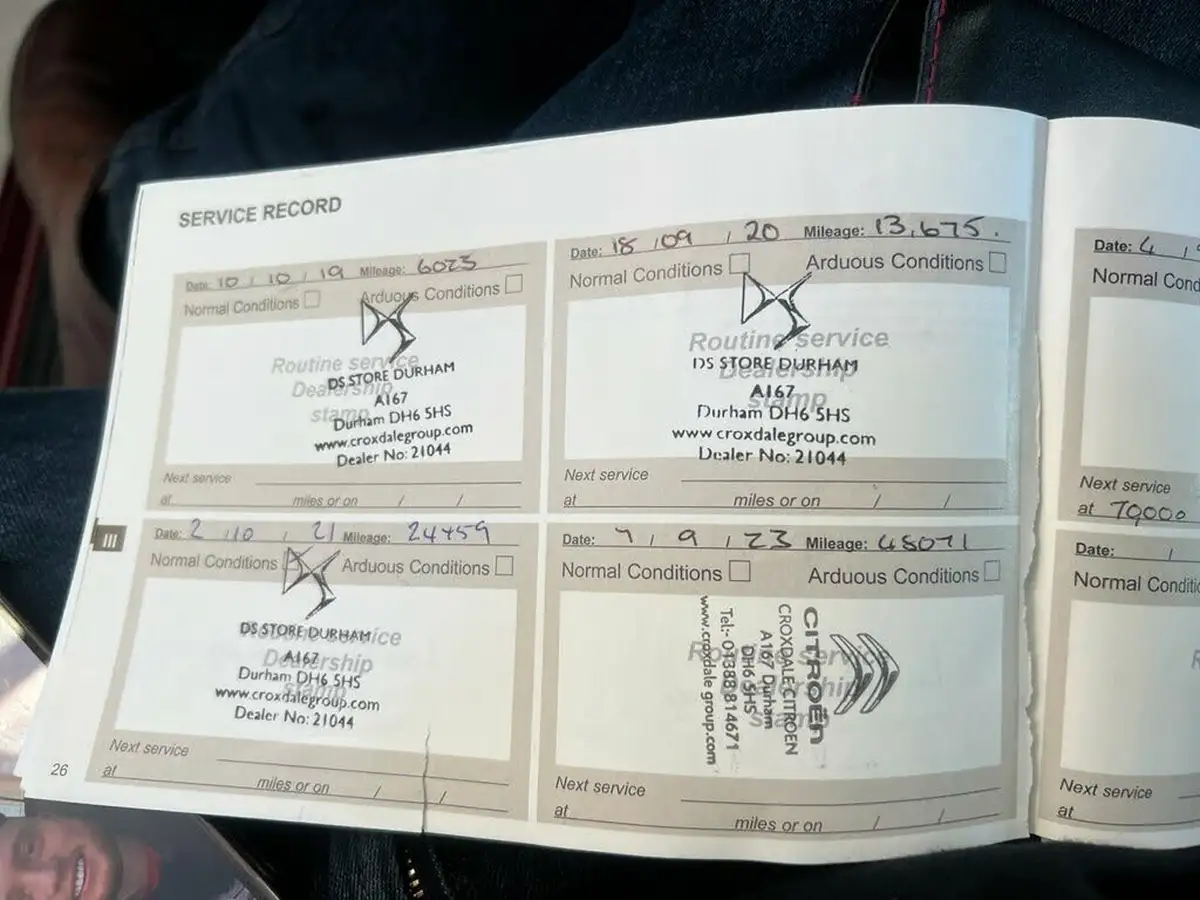 SERVICE RECORD
Date: 10 / 10 / 19 Mileage: 6023
Normal Conditions Arduous Conditions
Routine service
Dealership
stamp
DS STORE DURHAM
A167
Durham DH6 5HS
www.croxdalegroup.com
Dealer No: 21044
Next service
at miles or on / /
Date: 18 / 09 / 20 Mileage: 13,675.
Normal Conditions Arduous Conditions
Routine service
Dealership
stamp
DS STORE DURHAM
A167
Durham DH6 5HS
www.croxdalegroup.com
Dealer No: 21044
Next service
at miles or on / /
Date: 2 / 10 / 21 Mileage: 24459
Normal Conditions Arduous Conditions
Routine service
Dealership
stamp
DS STORE DURHAM
A167
Durham DH6 5HS
www.croxdalegroup.com
Dealer No: 21044
Next service
at miles or on / /
Date: 7 / 9 / 23 Mileage: 48071
Normal Conditions Arduous Conditions
Routine service
Dealership
stamp
CITROËN
CROXDALE CITROEN
A167 Durham
DH6 5HS
Tel:- 01388 814671
www.croxdale group.com
Next service
at miles or on / /
III
26
Date: 4 /
Normal Cond
Next service
at 70000
Date: /
Normal Conditi
Next service
at